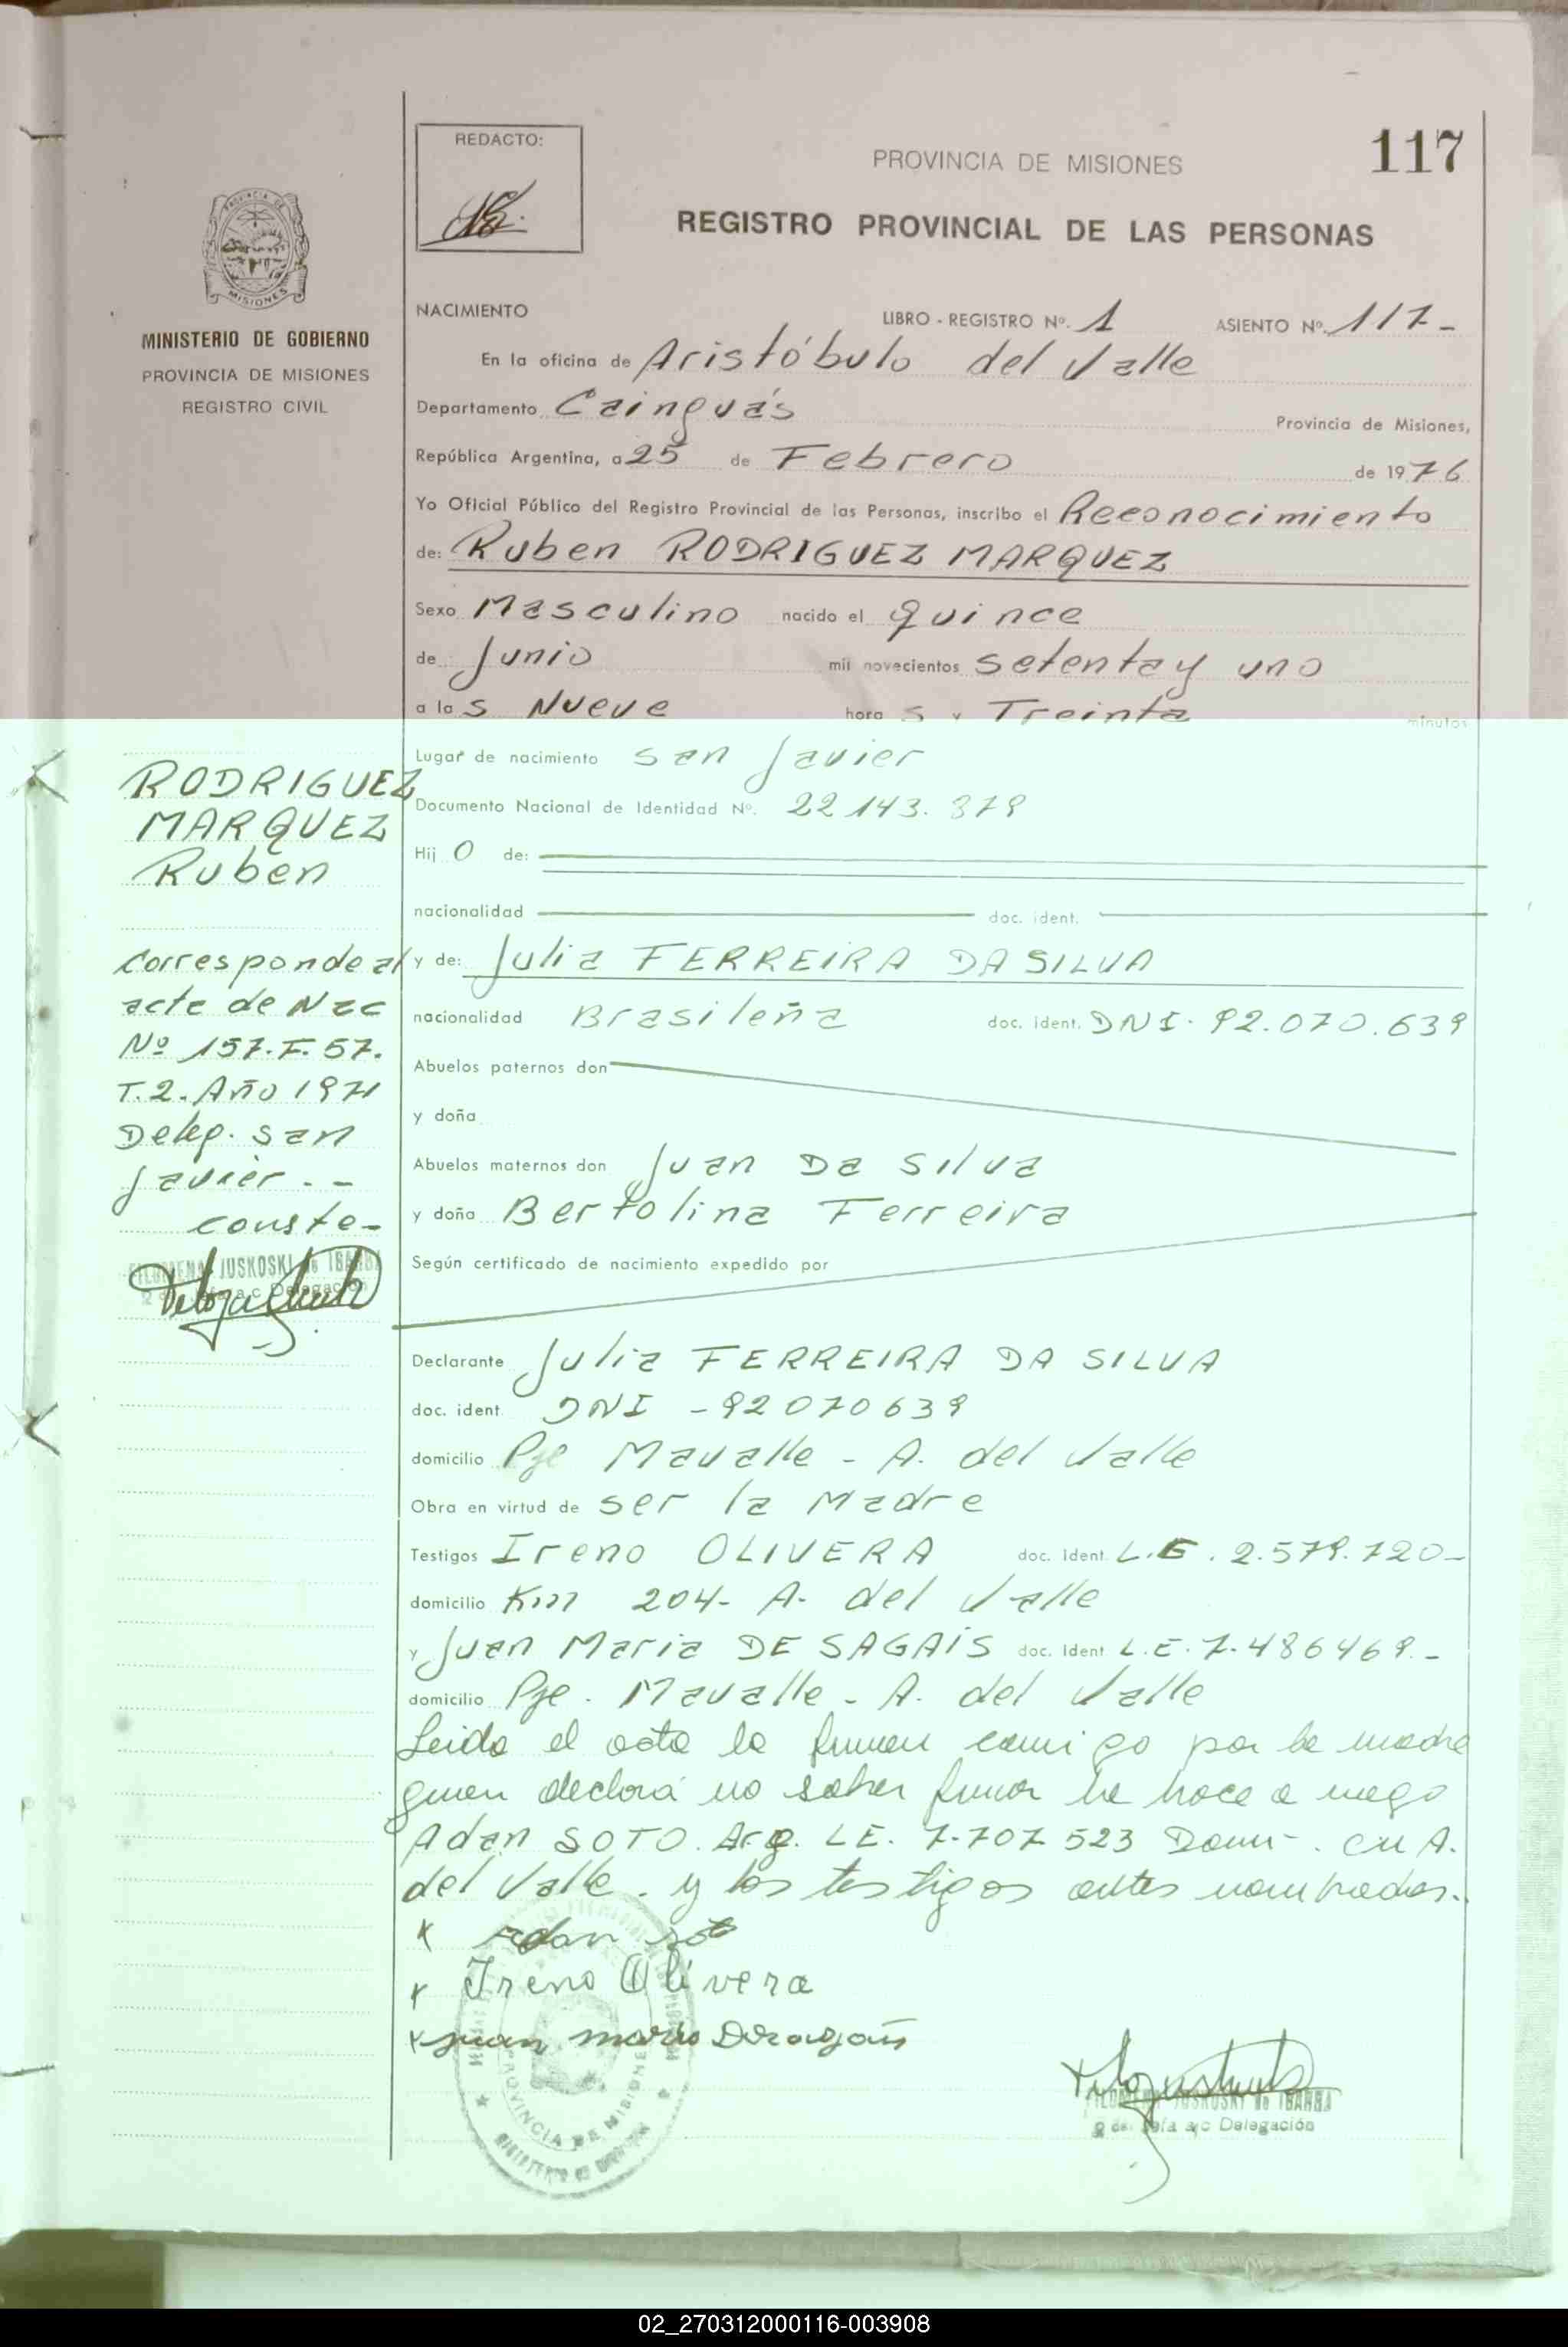 REDACTO:
PROVINCIA DE MISIONES
117
REGISTRO PROVINCIAL DE LAS PERSONAS
MISIONES
MINISTERIO DE GOBIERNO
PROVINCIA DE MISIONES
REGISTRO CIVIL
NACIMIENTO LIBRO - REGISTRO Nº. 1 ASIENTO Nº. 117-
En la oficina de Aristóbulo del Valle
Departamento Cainguás Provincia de Misiones,
República Argentina, a 25 de Febrero de 1976
Yo Oficial Público del Registro Provincial de las Personas, inscribo el Reconocimiento
de: Ruben RODRIGUEZ MARQUEZ
Sexo Masculino nacido el quince
de Junio mil novecientos setenta y uno
a las Nueve horas y Treinta minutos
Lugar de nacimiento San Javier
Documento Nacional de Identidad Nº. 22.143.879
Hijo de:
nacionalidad doc. ident.
y de: Julia FERREIRA DA SILVA
nacionalidad Brasileña doc. ident. DNI. 92.070.639
Abuelos paternos don
y doña
Abuelos maternos don Juan Da Silva
y doña Bertolina Ferreira
Según certificado de nacimiento expedido por
RODRIGUEZ
MARQUEZ
Ruben
Corresponde al
acta de Nac
Nº 157.F.57.
T.2. Año 1971
Deleg. San
Javier.--
conste-
FILOMENA JUSKOSKI de IBARRA
Delegación
Declarante Julia FERREIRA DA SILVA
doc. ident. DNI - 92070639
domicilio Pje Mavalle - A. del Valle
Obra en virtud de ser la Madre
Testigos Ireno OLIVERA doc. ident. L.E. 2.579.720-
domicilio Km 204- A. del Valle
y Juan Maria DE SAGAIS doc. ident. L.E. 7.486469.-
domicilio Pje. Mavalle - A. del Valle
Leida el acta la firman comigo por la madre
quien declará no saber firmar lo hace a ruego
Adan SOTO. Arg. LE. 7.707 523 Domi-. en A.
del Valle. y los testigos antes nombrados.
x Adan Soto
x Ireno Olivera
x Juan Maria
PROVINCIA DE MISIONES
FILOMENA JUSKOSKI de IBARRA
2da Jefa a/c Delegación
02_270312000116-003908